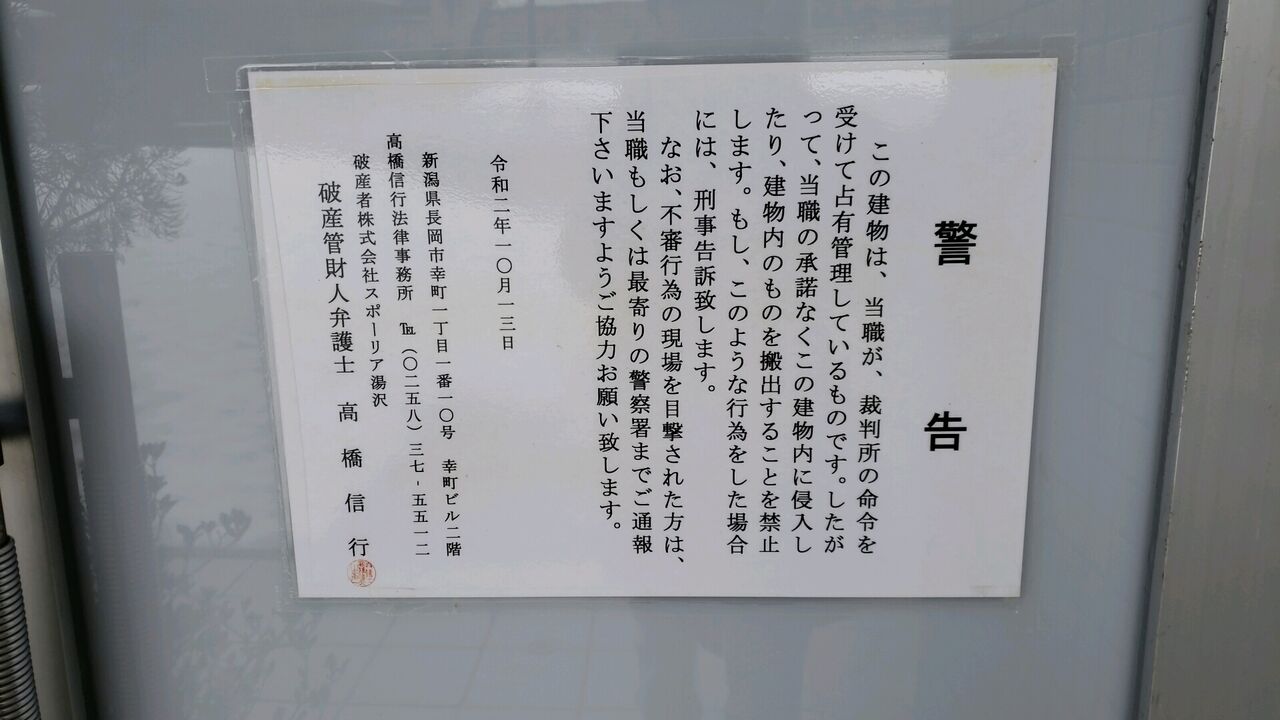 警告
この建物は、当職が、裁判所の命令を
受けて占有管理しているものです。したが
って、当職の承諾なくこの建物内に侵入し
たり、建物内のものを搬出することを禁止
します。もし、このような行為をした場合
には、刑事告訴致します。
なお、不審行為の現場を目撃された方は、
当職もしくは最寄りの警察署までご通報
下さいますようご協力お願い致します。
令和二年一〇月一三日
新潟県長岡市幸町一丁目一番一〇号 幸町ビル二階
高橋信行法律事務所 ℡(〇二五八)三七-五五一二
破産者株式会社スポーリア湯沢
破産管財人弁護士 高橋信行